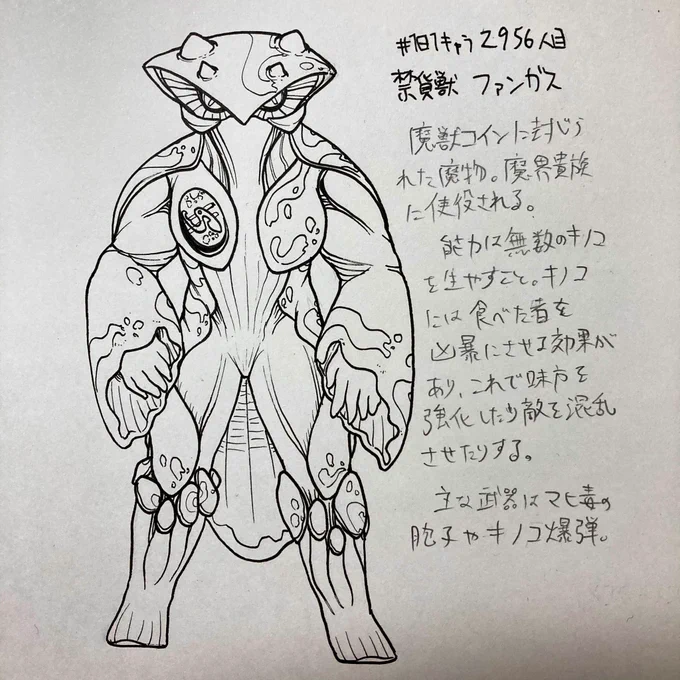 #1日1キャラ 2956人目
禁貨獣 ファンガス
魔獣コインに封じら
れた魔物。魔界貴族
に使役される。
能力は無数のキノコ
を生やすこと。キノコ
には食べた者を
凶暴にさせる効果が
あり、これで味方を
強化したり敵を混乱
させたりする。
主な武器はマヒ毒の
胞子やキノコ爆弾。